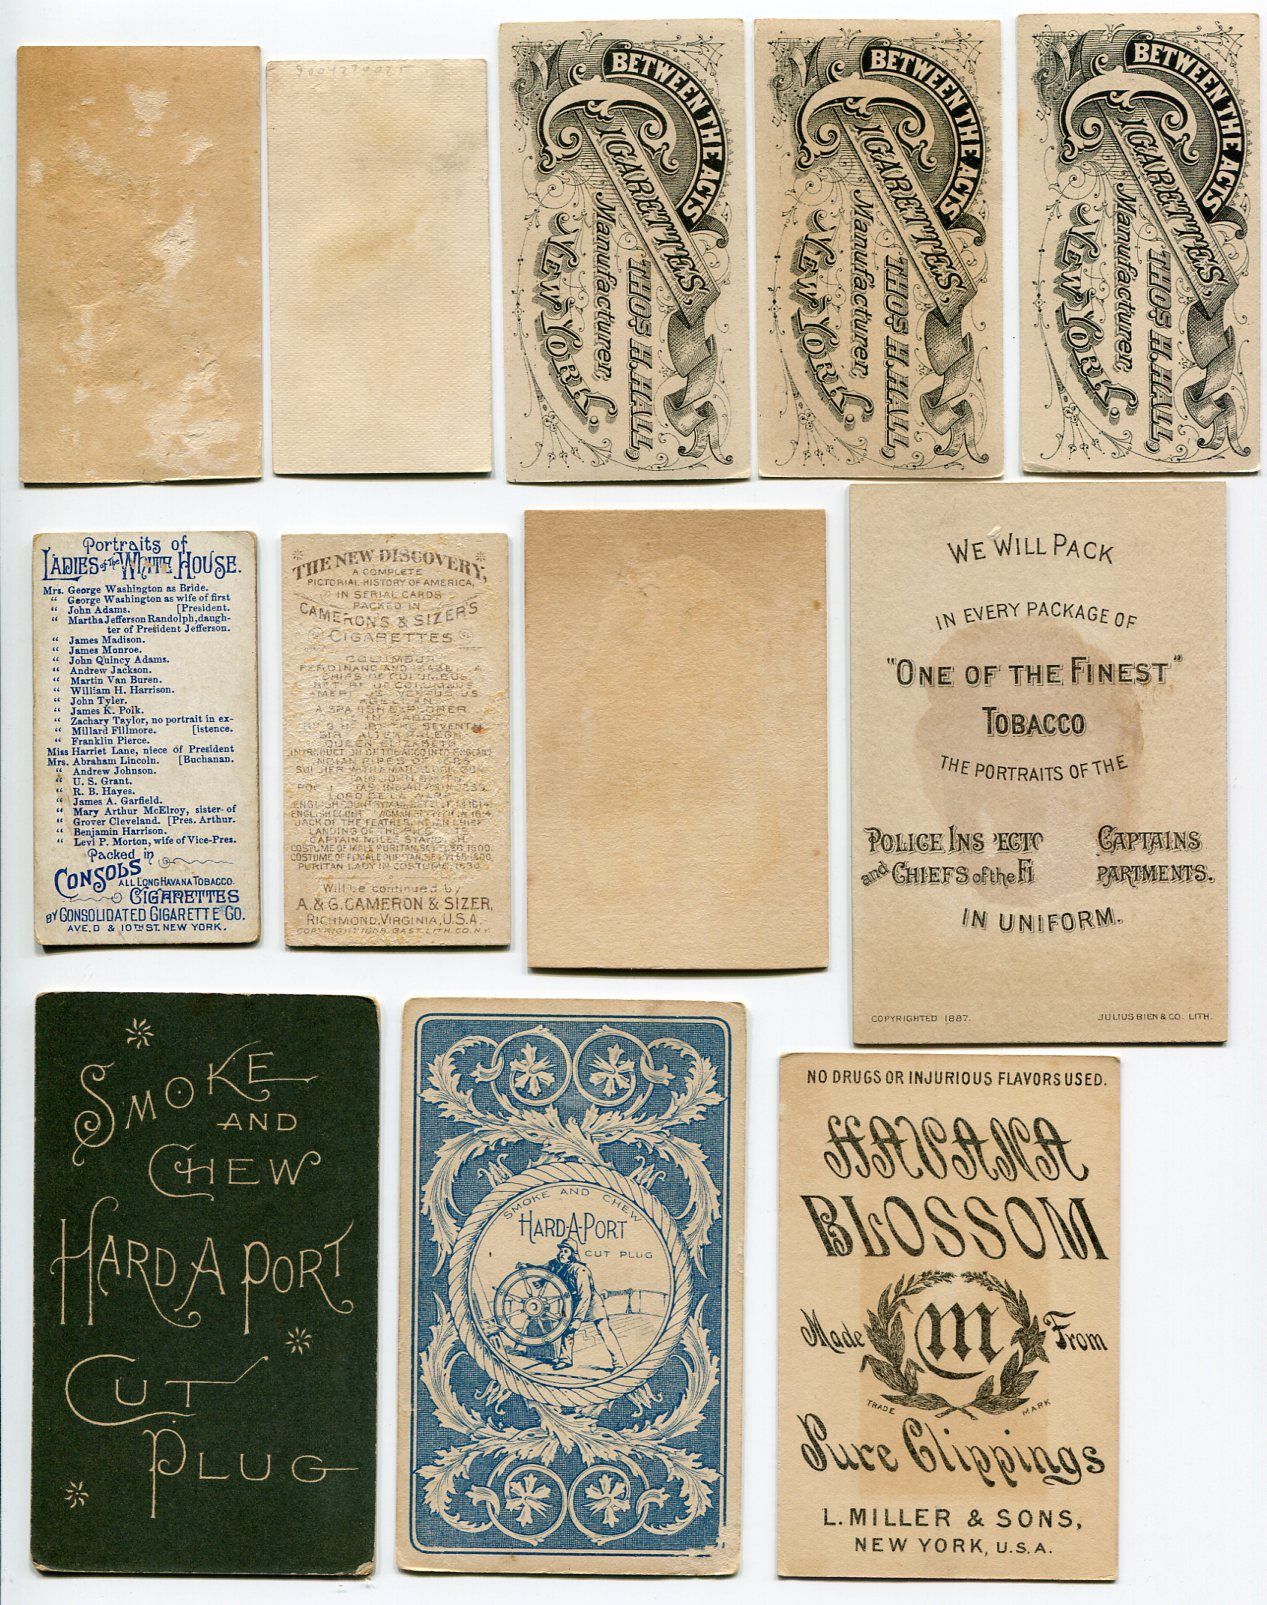 BETWEEN THE ACTS
CIGARETTES,
THOS H. HALL,
Manufacturer,
NEW YORK.
BETWEEN THE ACTS
CIGARETTES,
THOS H. HALL,
Manufacturer,
NEW YORK.
BETWEEN THE ACTS
CIGARETTES,
THOS H. HALL,
Manufacturer,
NEW YORK.
Portraits of
LADIES of The WHITE HOUSE.
Mrs. George Washington as Bride.
“ George Washington as wife of first
“ John Adams. [President.
“ Martha Jefferson Randolph, daugh-
ter of President Jefferson.
“ James Madison.
“ James Monroe.
“ John Quincy Adams.
“ Andrew Jackson.
“ Martin Van Buren.
“ William H. Harrison.
“ John Tyler.
“ James K. Polk.
“ Zachary Taylor, no portrait in ex-
“ Millard Fillmore. [istence.
“ Franklin Pierce.
Miss Harriet Lane, niece of President
Mrs. Abraham Lincoln. [Buchanan.
“ Andrew Johnson.
“ U. S. Grant.
“ R. B. Hayes.
“ James A. Garfield.
“ Mary Arthur McElroy, sister of
“ Grover Cleveland. [Pres. Arthur.
“ Benjamin Harrison.
“ Levi P. Morton, wife of Vice-Pres.
Packed in
CONSOLS
ALL LONG HAVANA TOBACCO
CIGARETTES
BY CONSOLIDATED CIGARETTE CO.
AVE. D & 10TH ST. NEW YORK.
THE NEW DISCOVERY,
A COMPLETE
PICTORIAL HISTORY OF AMERICA,
IN SERIAL CARDS
PACKED IN
CAMERON'S & SIZER'S
CIGARETTES
FERDINAND AND
A SPANISH EXPLORER
THE SEVENTH
SIR
QUEEN
INTO ENGLAND
INDIAN PIPES OF
JACK OF THE FEATHER, INDIAN CHIEF
LANDING OF THE
CAPTAIN MILES STANDISH
COSTUME OF MALE PURITAN,
COSTUME OF FEMALE PURITAN,
PURITAN LADY IN COSTUME, 1630.
Will be continued by
A. & G. CAMERON & SIZER,
RICHMOND, VIRGINIA, U.S.A.
WE WILL PACK
IN EVERY PACKAGE OF
"ONE OF THE FINEST"
TOBACCO
THE PORTRAITS OF THE
POLICE INSPECTO CAPTAINS
and CHIEFS of the FI PARTMENTS.
IN UNIFORM.
COPYRIGHTED 1887. JULIUS BIEN & CO. LITH.
SMOKE
AND
CHEW
HARD A PORT
CUT
PLUG
SMOKE AND CHEW
HARD-A-PORT
CUT PLUG
NO DRUGS OR INJURIOUS FLAVORS USED.
HAVANA
BLOSSOM
Made M From
TRADE MARK
Pure Clippings
L. MILLER & SONS,
NEW YORK, U.S.A.